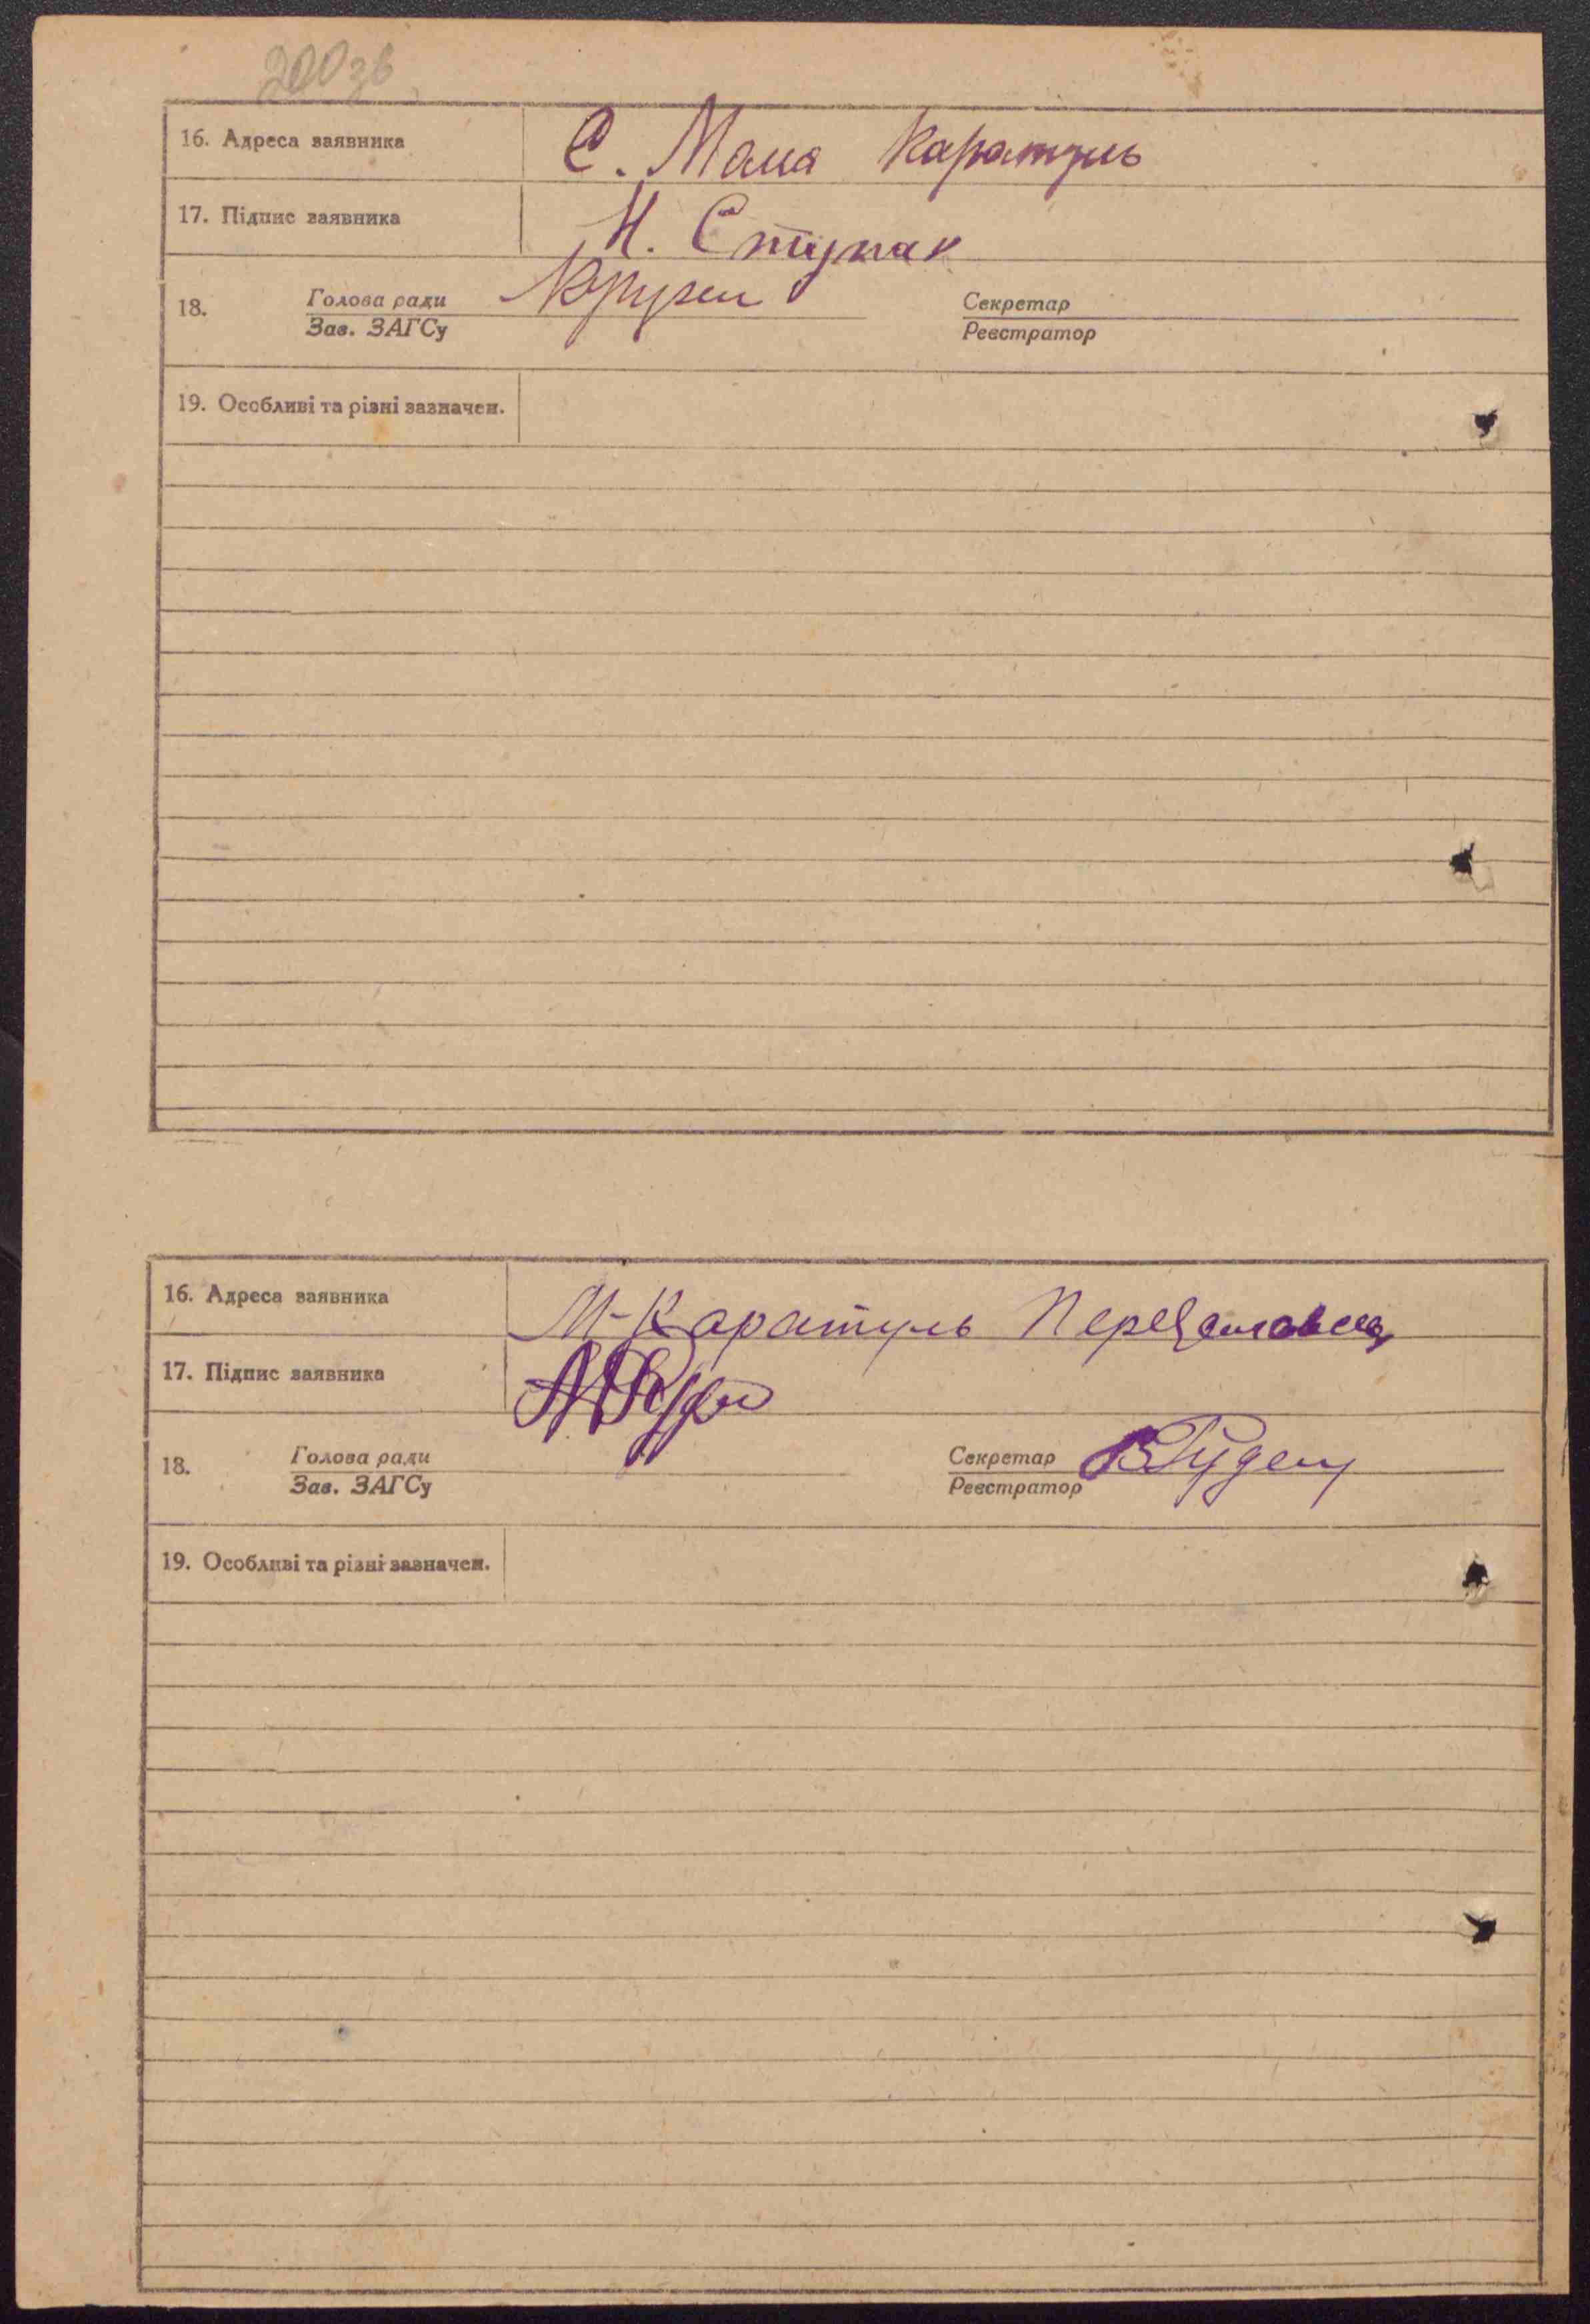 200зв
16. Адреса заявника С. Мала Каратуль
17. Підпис заявника Н. Ступак
18. Голова ради Секретар
Зав. ЗАГСу Реєстратор
19. Особливі та різні зазначен.
16. Адреса заявника М-Каратуль
17. Підпис заявника
18. Голова ради Секретар
Зав. ЗАГСу Реєстратор
19. Особливі та різні зазначен.